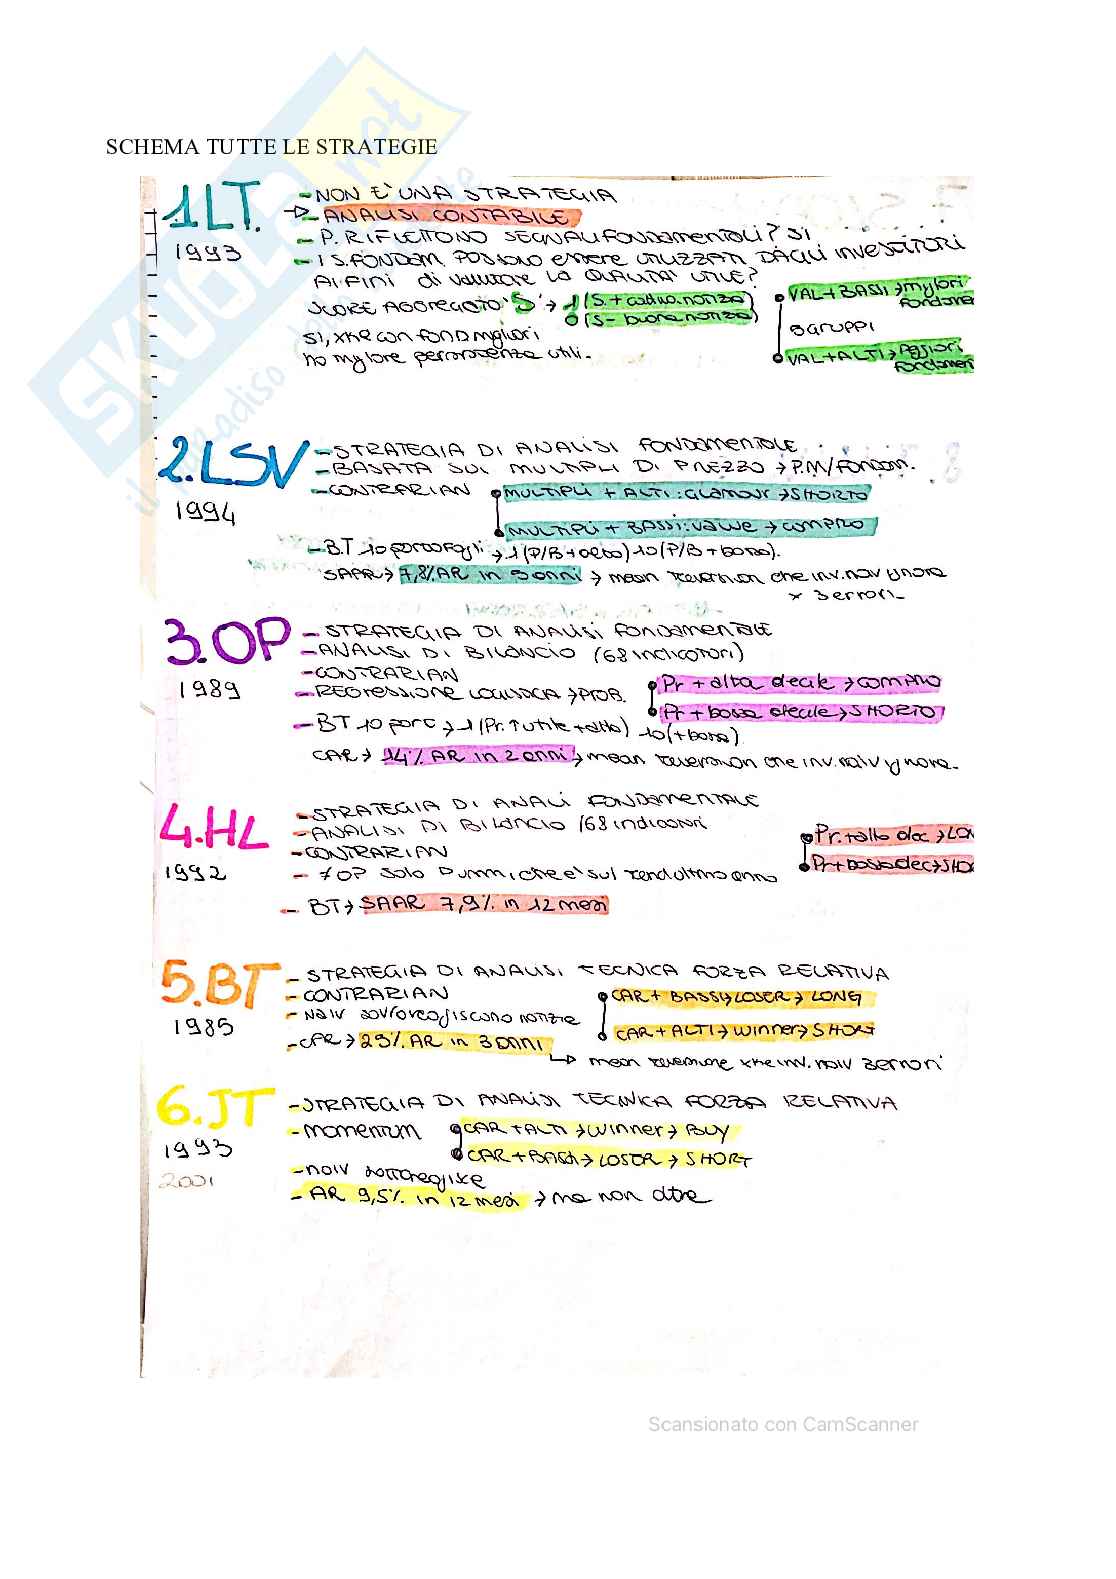 SCHEMA TUTTE LE STRATEGIE
1 LT.
1993
- NON È UNA STRATEGIA
→ - ANALISI CONTABILE
- P. RIFLETTONO SEGNALI FONDAMENTALI? SI
- I S. FONDAM. POSSONO ESSERE UTILIZZATI DAGLI INVESTITORI
AI FINI di valutare LA QUALITÀ UTILE?
SCORE AGGREGATO "S" → 1 (S. + cattiva notizia)
0 (S - buona notizia)
VAL + BASSI → migliori
fondame
3 GRUPPI
VAL + ALTI → peggiori
fondamen
SI, xké con fond migliori
ho migliore persistenza utili.
2. LSV
1994
- STRATEGIA DI ANALISI FONDAMENTALE
- BASATA SUI MULTIPLI DI PREZZO → P.M/FONDAM.
- CONTRARIAN
MULTIPLI + ALTI: GLAMOUR → SHORTO
MULTIPLI + BASSI: VALUE → COMPRO
- BT 10 portafogli → 1 (P/B + alto) 10 (P/B + basso).
SAAR → 7,8% AR in 5 anni → mean reversion che inv. naiv ignora
x 3 errori -
3. OP
1989
- STRATEGIA DI ANALISI FONDAMENTALE
- ANALISI DI BILANCIO (68 indicatori)
- CONTRARIAN
- REGRESSIONE LOGISTICA → PROB.
Pr + alta decile → COMPRO
Pr + bassa decile → SHORTO
- BT 10 porta → 1 (Pr. ↑ utile + alta) 10 (+ bassa)
CAR → 14% AR in 2 anni → mean reversion che inv. naiv ignora -
4. HL
1992
- STRATEGIA DI ANALI FONDAMENTALE
- ANALISI DI BILANCIO /68 indicatori
- CONTRARIAN
Pr. + alto dec → LON
Pr + bassa dec → SHO
- ≠ OP solo Dummi, che è sul rend ultimo anno
- BT → SAAR 7,9% in 12 mesi
5. BT
1985
- STRATEGIA DI ANALISI TECNICA FORZA RELATIVA
- CONTRARIAN
- naiv sovrareagiscono notizie
CAR + BASSI → LOSER → LONG
CAR + ALTI → WINNER → SHORT
- CAR → 25% AR in 3 ANNI
→ mean reversione xké inv. naiv 3 errori
6. JT
1993
2001
- STRATEGIA DI ANALISI TECNICA FORZA RELATIVA
- MOMENTUM
CAR + ALTI → WINNER → BUY
CAR + BASSI → LOSER → SHORT
- naiv sottoreagisce
- AR 9,5% in 12 mesi → ma non oltre
Scansionato con CamScanner
SKUOLA.net
il paradiso dello studente